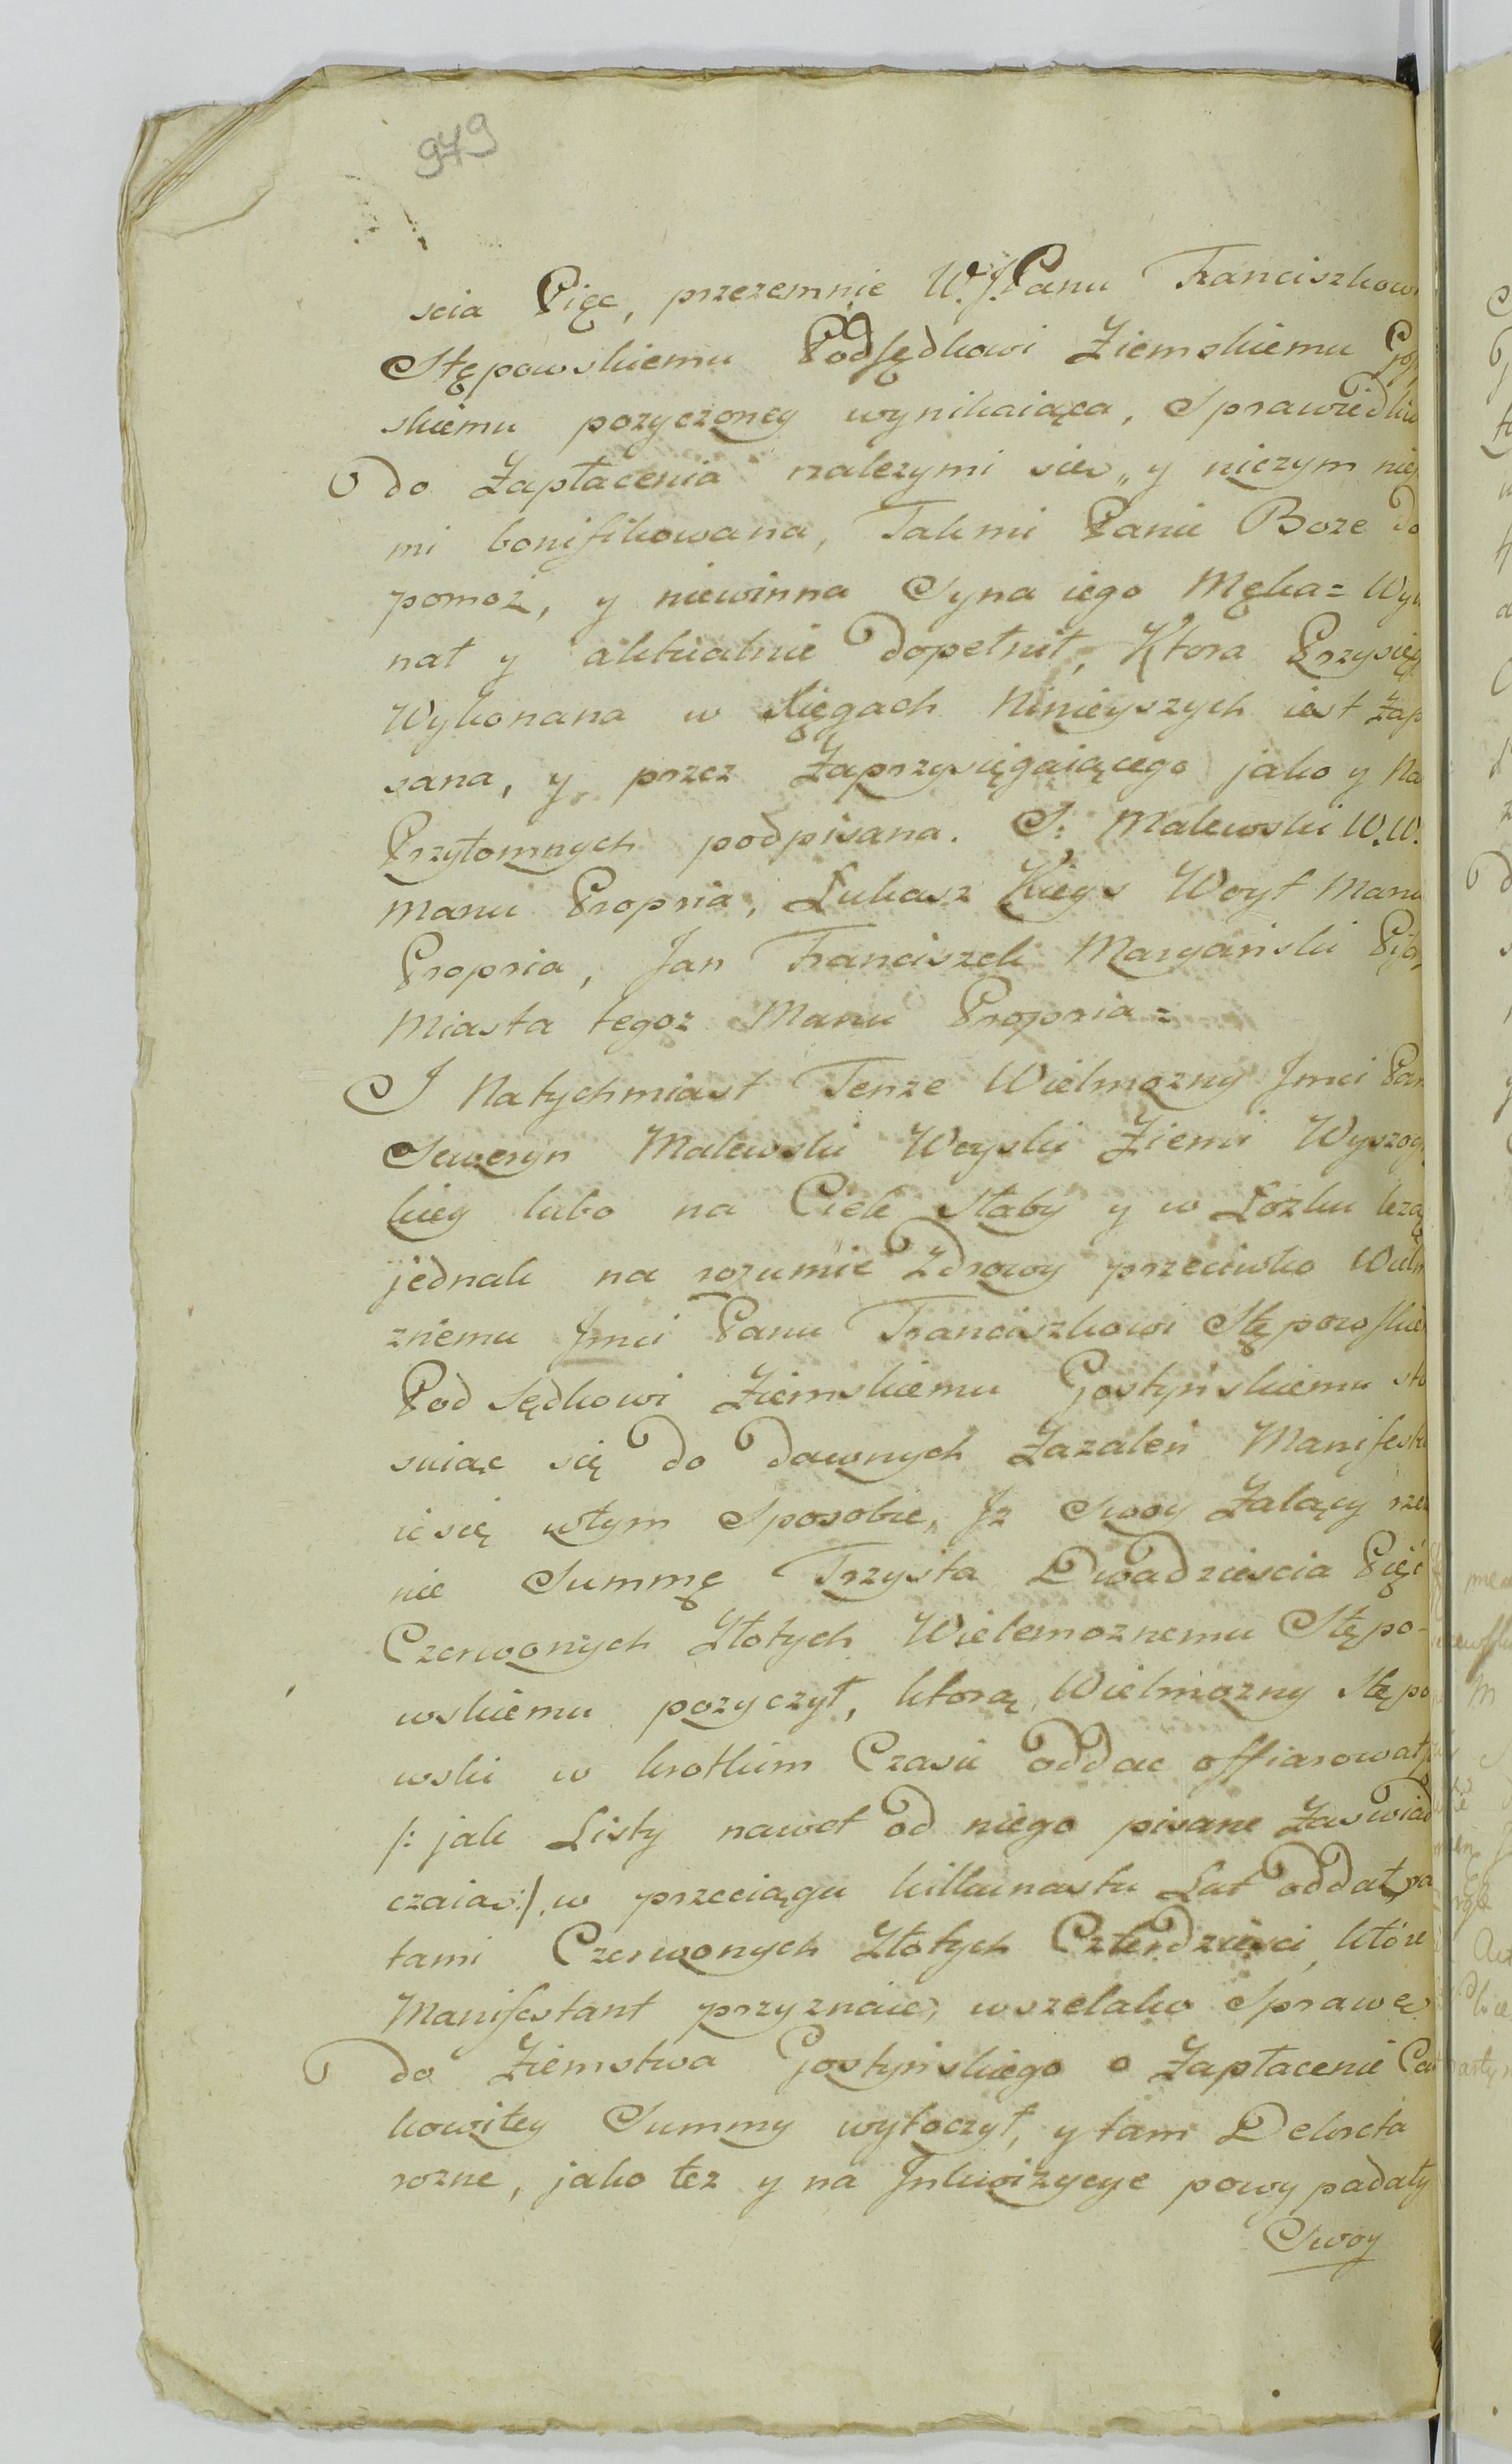 979
scia Pięc, przezemnie W.J.Panu Franciszkowi
Stępowskiemu Podsędkowi Ziemskiemu Gos
skiemu pozyczoney wynikaiąca, Sprawiedliw
do Zapłacenia nalezymi sie„ y niczym nie
mi bonifikowana, Tak mi Panie Boze do
pomoż, y niewinna Syna iego Męka= Wyk
nał y aktualnie dopełnił, Ktora Przysięg
Wykonana w Xięgach Ninieyszych iest Zap
sana, y przez Zaprzysięgaiącego jako y Na
Przytomnych podpisana. S: Malewski W.W.
Manu Propria, Łukasz Woyt Manu
Propria, Jan Franciszek Maryański Pisa
Miasta tegoz Manu Propria=
J Natychmiast Tenze Wielmozny Jmci Pan
Seweryn Malewski Woyski Ziemi Wyszog
kiey lubo na Ciele Słaby y w Łozku lezą
jednak na rozumie Zdrowy przeciwko Wielm
znemu Jmci Panu Franciszkowi Stępowskie
Pod Sędkowi Ziemskiemu Gostyńskiemu sto
suiąc się do dawnych Zazaleń Manifestu
ie się wtym Sposobie, Jz Swoy Zalący rze
nie Summę Trzysta Dwadziescia Pięć
Czerwonych Złotych Wielemoznemu Stępo-
wskiemu pozyczył, ktorą Wielmozny Stępo
wski w krotkim Czasie oddac offiarował
/: jak Listy nawet od niego pisane Zaswiad
czaią:/, w przeciągu kilkunastu Lat oddał, ra
tami Czerwonych Złotych Czterdziesci, które
Manifestant przyznaie, wszelako Sprawę
do Ziemstwa Gostyńskiego o Zapłacenie Cał
kowitey Summy wytoczył, y tam Dekreta
rozne, jako tez y na Jnkwizycye powypadały
Swoy